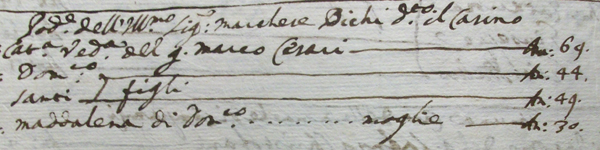 Pod.e dell'Ill.mo Sig.r marchese Bichi d.to il Casino
Cat.a Ved.a del q. marco Cesari An: 69.
Dom.co An: 44.
santi } figli An: 49.
maddalena di Dom.co .......... moglie An: 30.